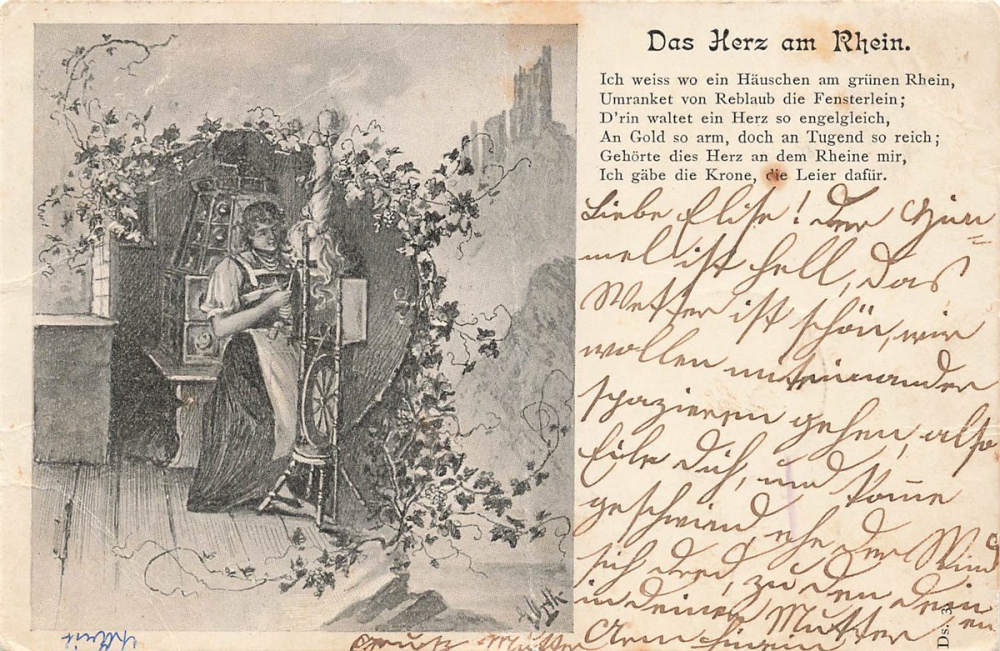 Das Herz am Rhein.
Ich weiss wo ein Häuschen am grünen Rhein,
Umranket von Reblaub die Fensterlein;
D'rin waltet ein Herz so engelgleich,
An Gold so arm, doch an Tugend so reich;
Gehörte dies Herz an dem Rheine mir,
Ich gäbe die Krone, die Leier dafür.
Liebe Elise! Der Him=
mel ist hell, das
Wetter ist schön, wir
wollen miteinander
spazieren gehen, also
Eile dich, und kom̄e
geschwind, ehe der Wind
sich dreht, zu den
in deiner Mutter
Arm hinein
Mutter
Ds. 3.